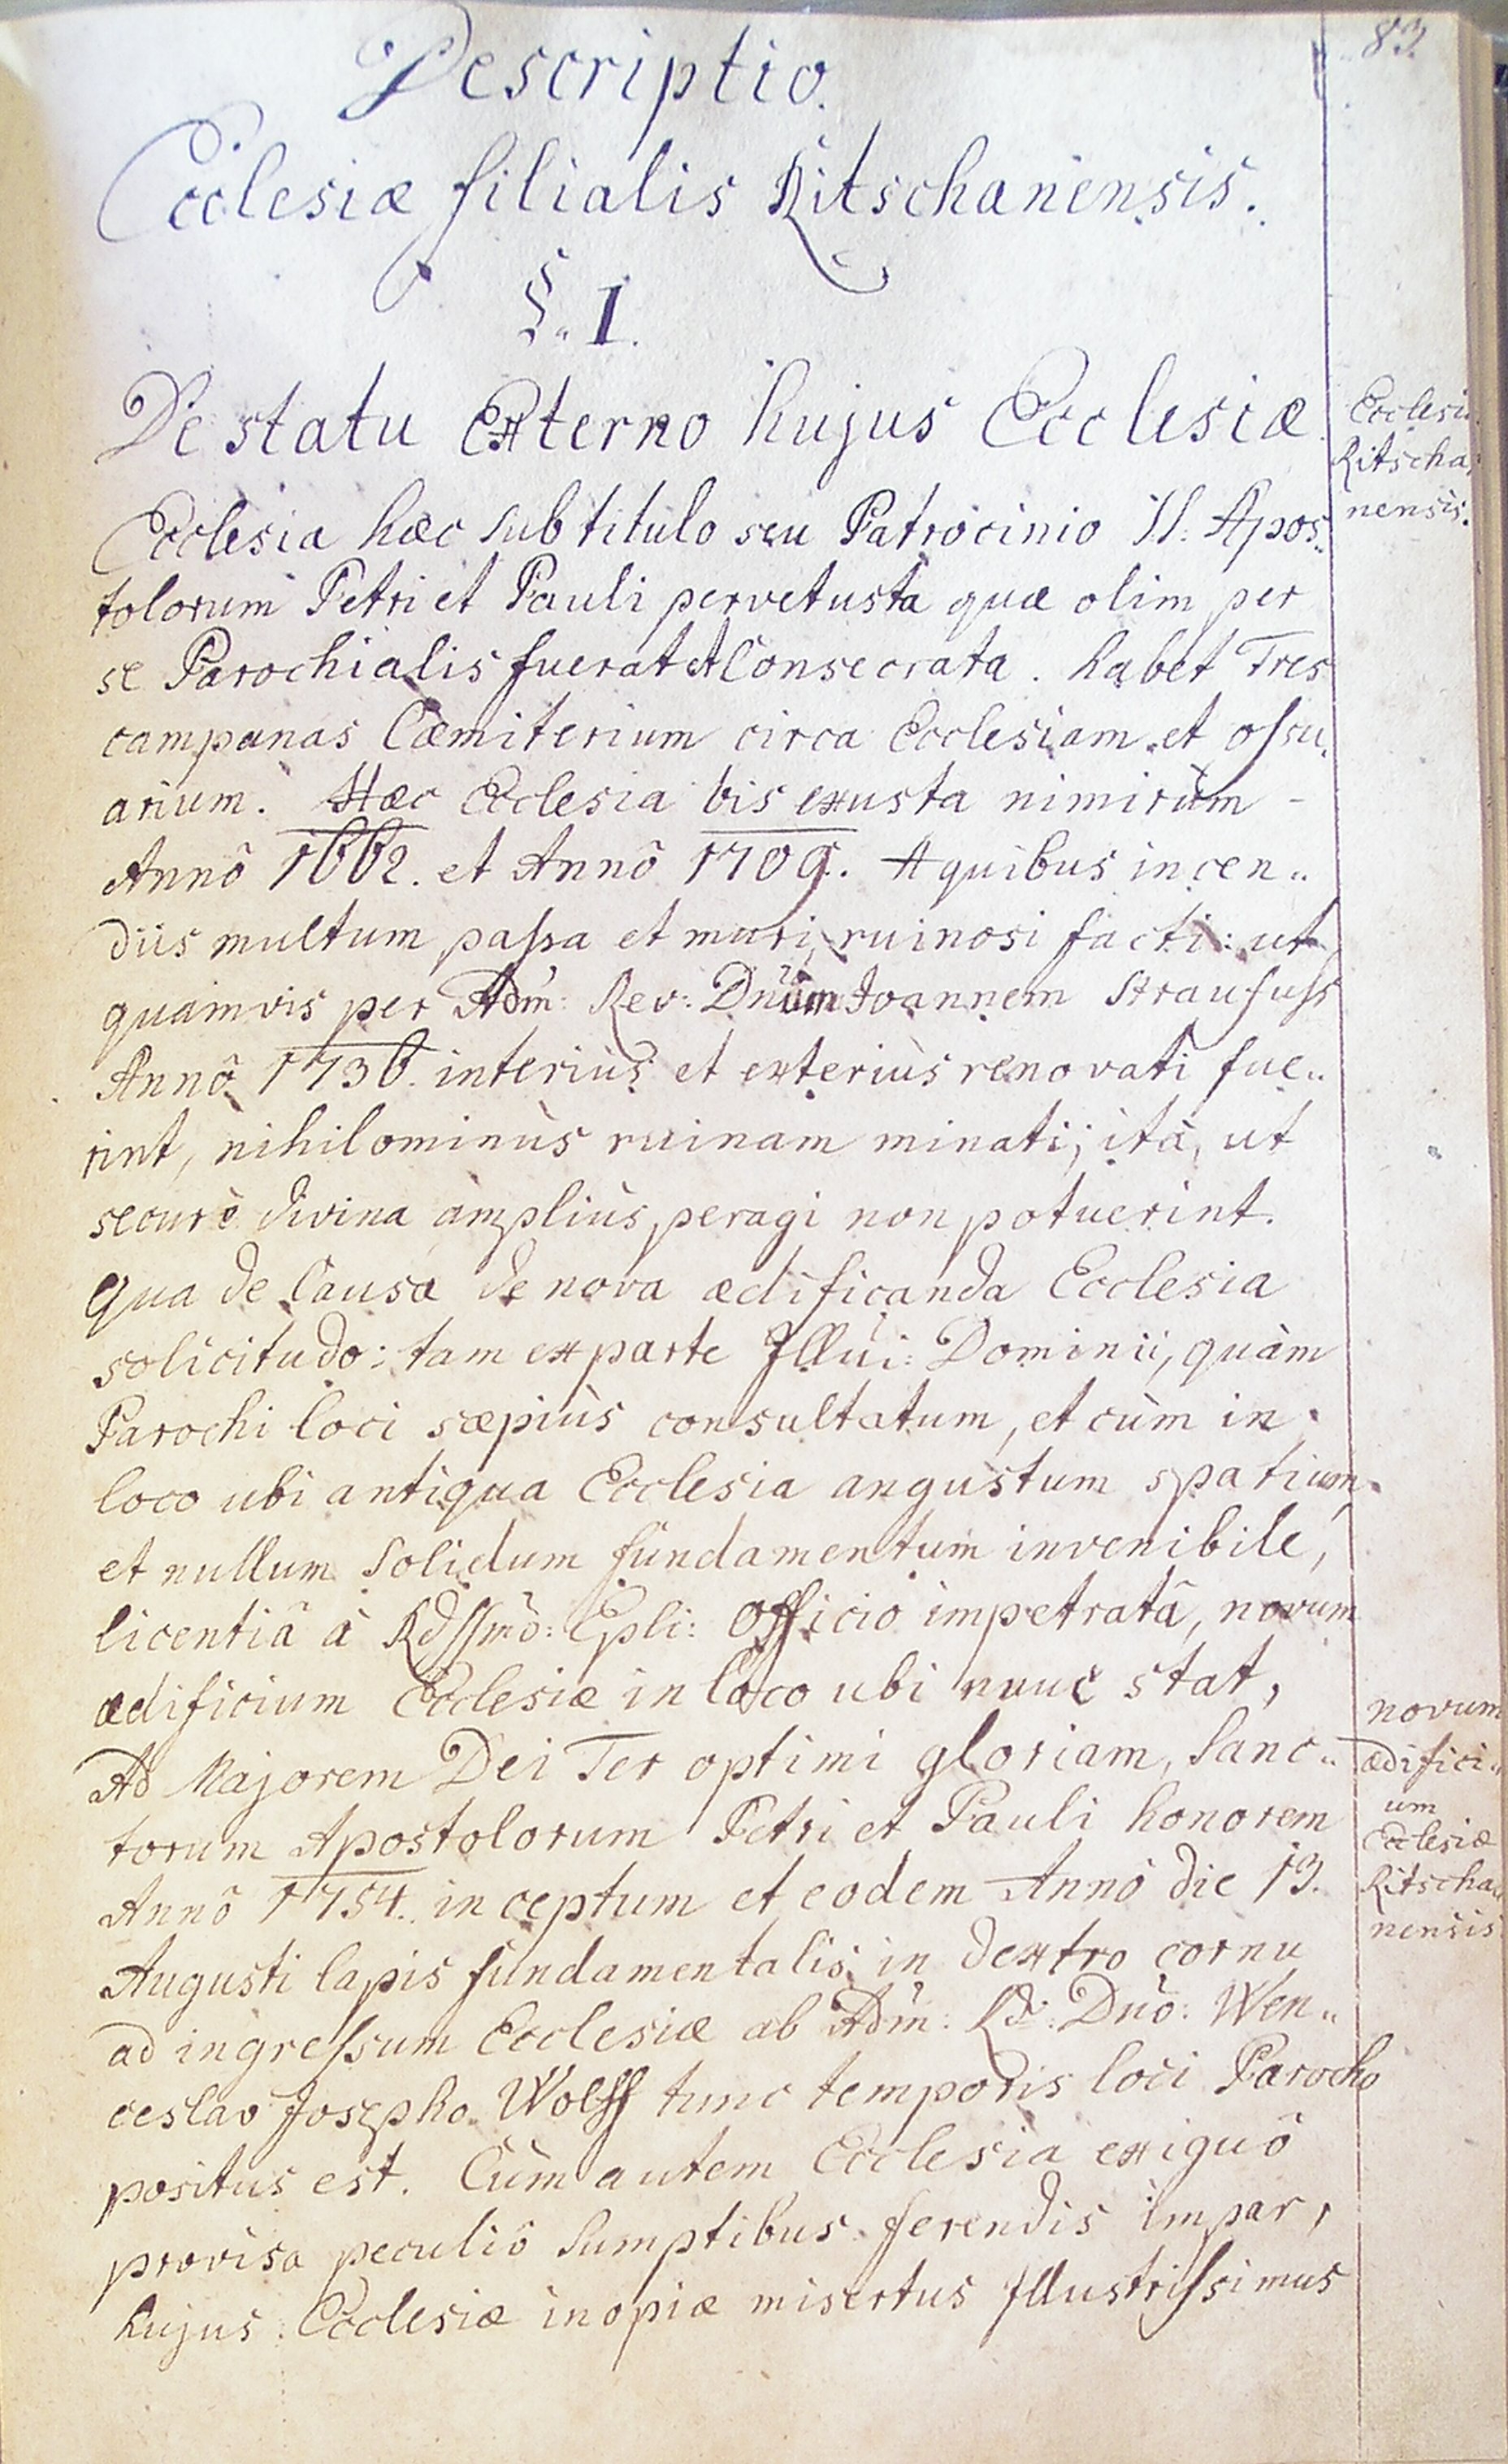 83.
Descriptio.
Ecclesiæ filialis Ritschanensis.
§. I.
De statu Externo hujus Ecclesiæ.
Ecclesia
Ritscha
nensis.
Ecclesia hæc sub titulo seu Patrocinio SS: Apos„
tolorum Petri et Pauli pervetusta quæ olim per
se Parochialis fuerat et Consecrata. habet Tres
campanas Cæmiterium circa Ecclesiam et ossu„
arium. Hæc Ecclesia bis exusta nimirùm -
Annô 1662. et Annô 1709. A quibus incen„
diis multum passa et muri ruinosi facti: ut
quamvis per Adm: Rev: Dnum Joannem Straususs
Annô 1736. interiùs et exteriùs renovati fue„
rint, nihilominùs ruinam minati; ità, ut
securè divina ampliùs peragi non potuerint.
Qua de Causa de nova ædificanda Ecclesia
solicitudo: tam ex parte Illui: Dominii, quàm
Parochi loci sæpiùs consultatum, et cùm in
loco ubi antiqua Ecclesia angustum spatium
et nullum solidum fundamentum invenibile,
licentiâ à Rdssmô: Epli: Officio impetratâ, novum
ædificium Ecclesiæ in Loco ubi nunc stat,
Ad Majorem Dei Ter optimi gloriam, Sanc„
torum Apostolorum Petri et Pauli honorem
Annô 1754. inceptum et eodem Annô die 13.
Augusti lapis fundamentalis in dextro cornu
ad ingressum Ecclesiæ ab Adm: Rd: Dnô: Wen„
ceslao Josepho Wolff tunc temporis loci Parocho
positus est. Cùm autem Ecclesia exiguô
provisa peculiô Sumptibus ferendis impar,
hujus Ecclesiæ inopiæ misertus Illustrissimus
novum
ædifici„
um
Ecclesiæ
Ritscha„
nensis